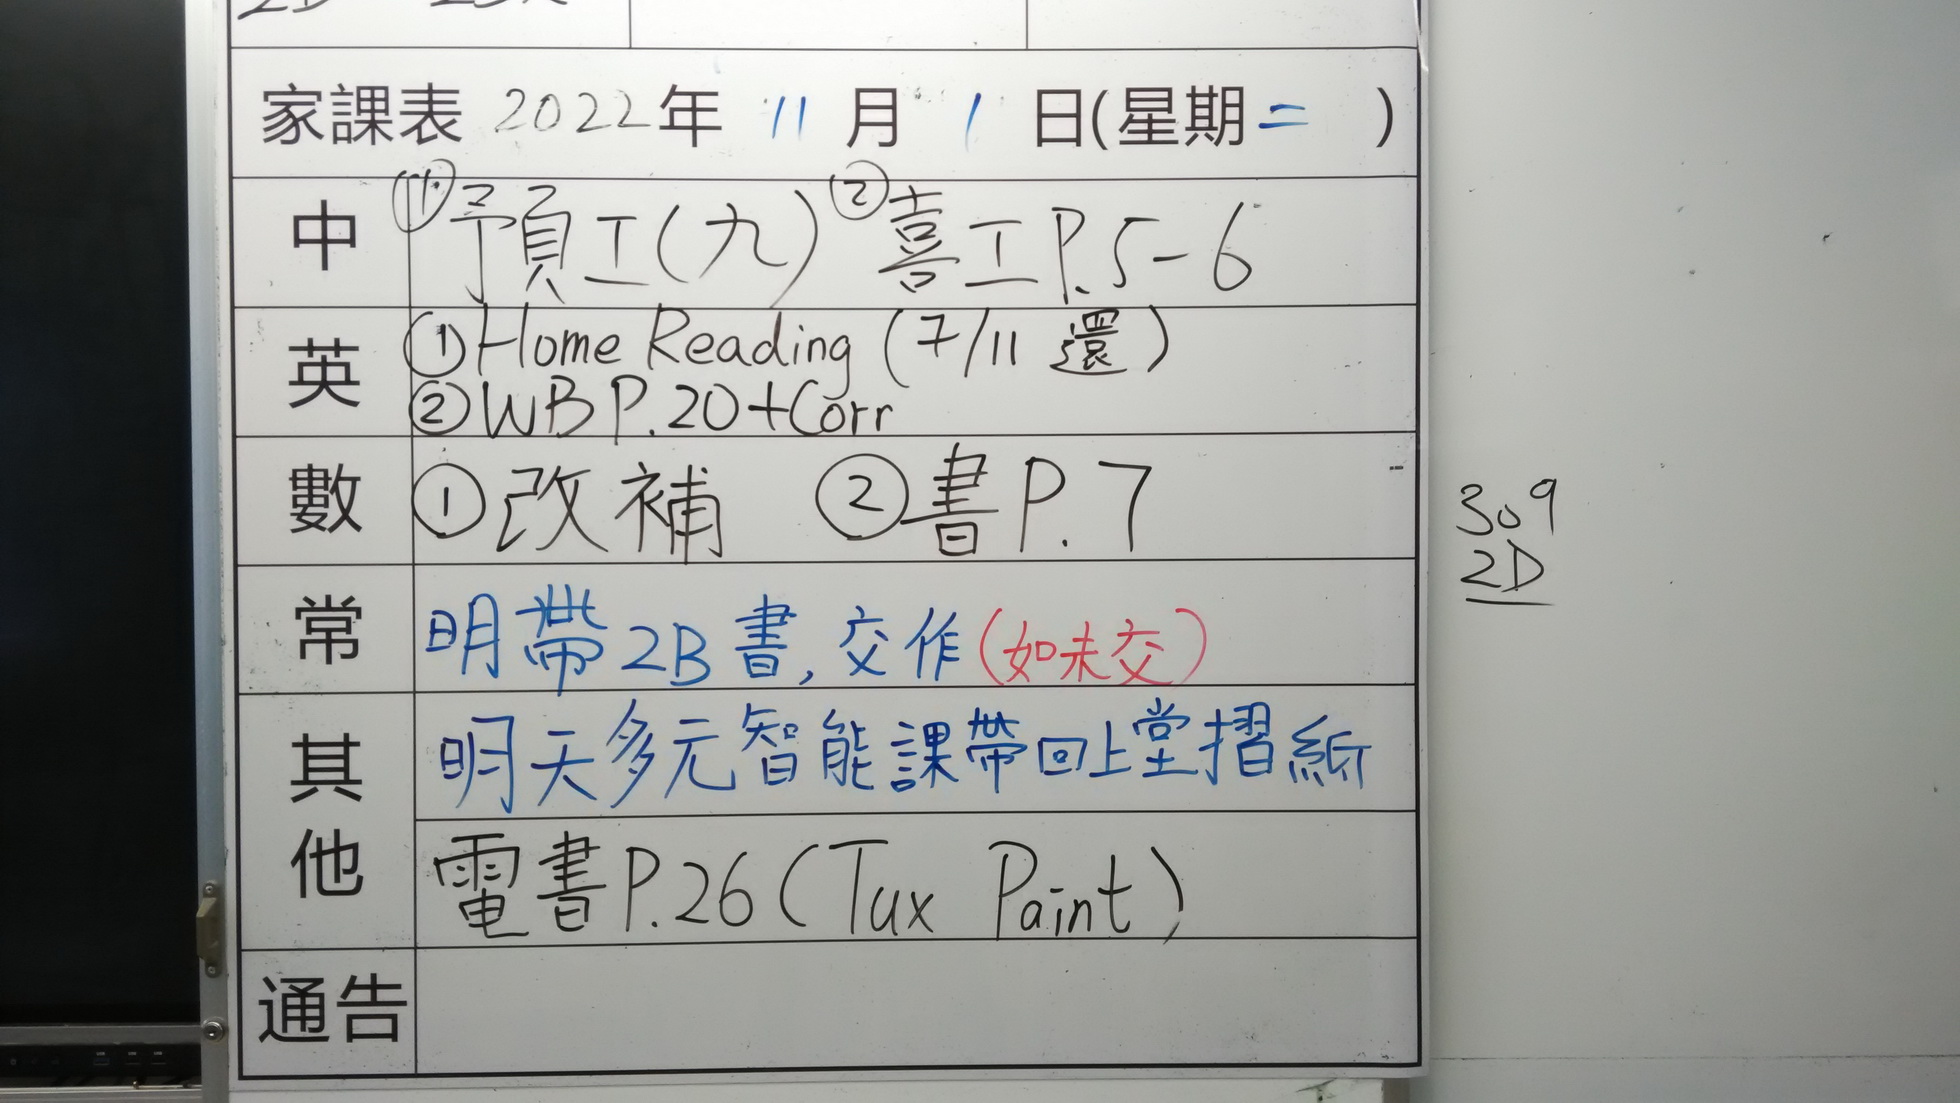 家課表 2022年 11 月 1 日(星期二 )
中 ①預工(九) ②喜工P.5-6
英 ①Home Reading (7/11 還)
②WB P.20+Corr
數 ①改補 ②書P.7
309
2D
常 明帶2B書, 交作(如未交)
其他 明天多元智能課帶回上堂摺紙
電書P.26(Tux Paint)
通告